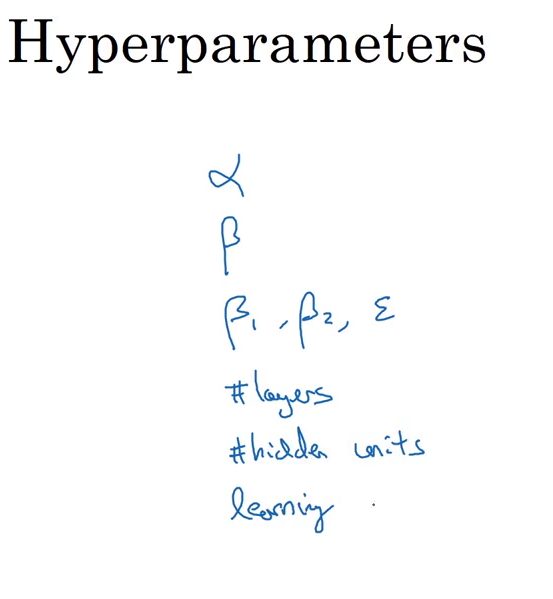 Hyperparameters
α
β
β₁, β₂, ε
#layers
#hidden units
learning